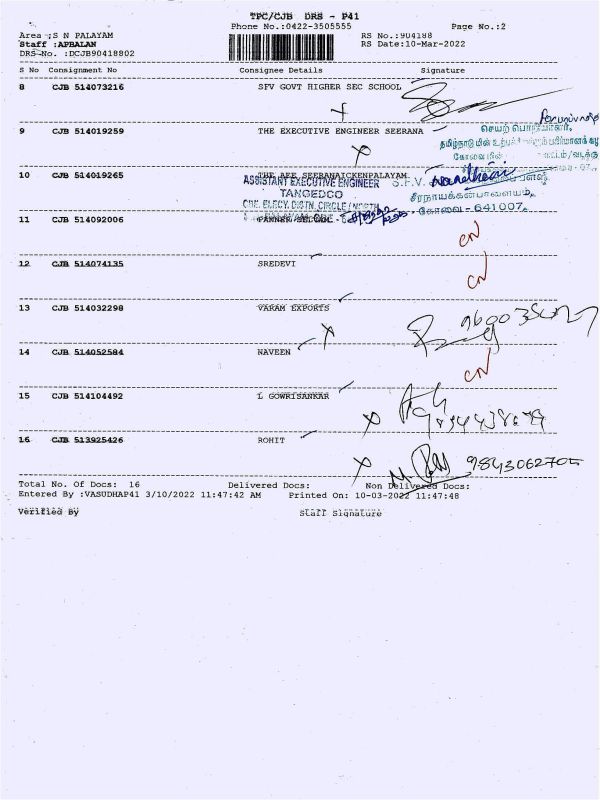 TPC/CJB DRS - P41
Phone No.:0422-3505555 Page No.:2
Area :S N PALAYAM RS No.:904188
Staff :APBALAN RS Date:10-Mar-2022
DRS No. :DCJB90418802
S No Consignment No Consignee Details Signature
8 CJB 514073216 SFV GOVT HIGHER SEC SCHOOL
9 CJB 514019259 THE EXECUTIVE ENGINEER SEERANA
செயற் பொறியாளர்,
10 CJB 514019265 THE AEE SEERANAICKENPALAYAM
ASSISTANT EXECUTIVE ENGINEER S.F.V.
TANGEDCO
சீரநாயக்கன்பாளையம்,
CBE. ELECY. DISTN. CIRCLE / NORTH
கோவை - 641007.
11 CJB 514092006
CN
12 CJB 514074135 SREDEVI
CN
13 CJB 514032298 VARAM EXPORTS
14 CJB 514052584 NAVEEN
CN
15 CJB 514104492 L GOWRISANKAR
16 CJB 513925426 ROHIT
Total No. Of Docs: 16 Delivered Docs: Non Delivered Docs:
Entered By :VASUDHAP41 3/10/2022 11:47:42 AM Printed On: 10-03-2022 11:47:48
Verified By Staff Signature